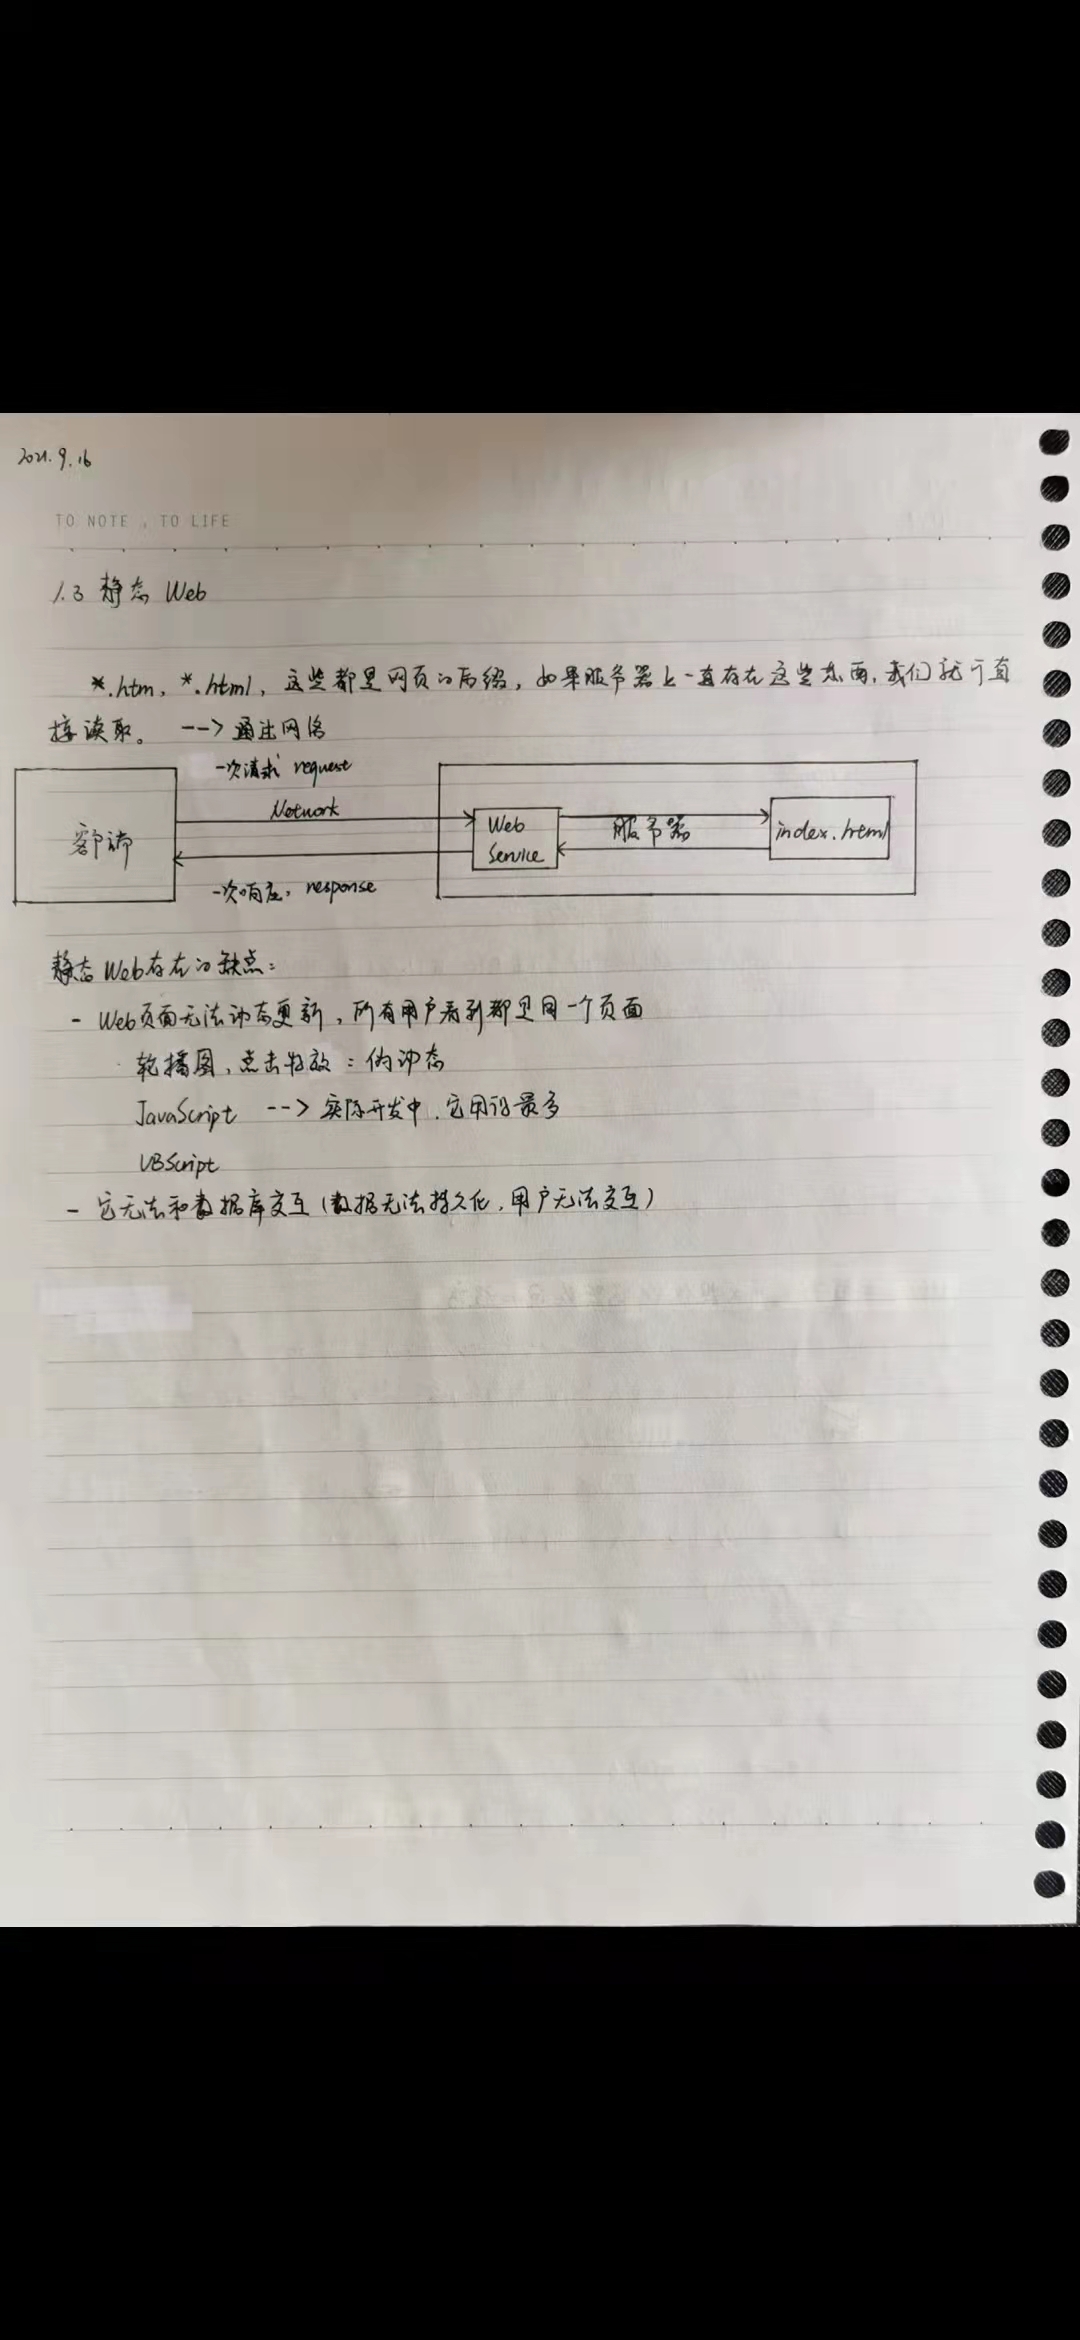 2021.9.16
TO NOTE , TO LIFE
1.3 静态 Web
*.htm, *.html, 这些都是网页的后缀, 如果服务器上一直存在这些东西, 我们就可直
接读取。 --> 通过网络
一次请求 request
Network
客户端
Web
Service
服务器
index.html
一次响应: response
静态Web存在的缺点:
- Web页面无法动态更新, 所有用户看到都是同一个页面
· 轮播图, 点击特效: 伪动态
JavaScript --> 实际开发中, 它用的最多
VBScript
- 它无法和数据库交互(数据无法持久化, 用户无法交互)